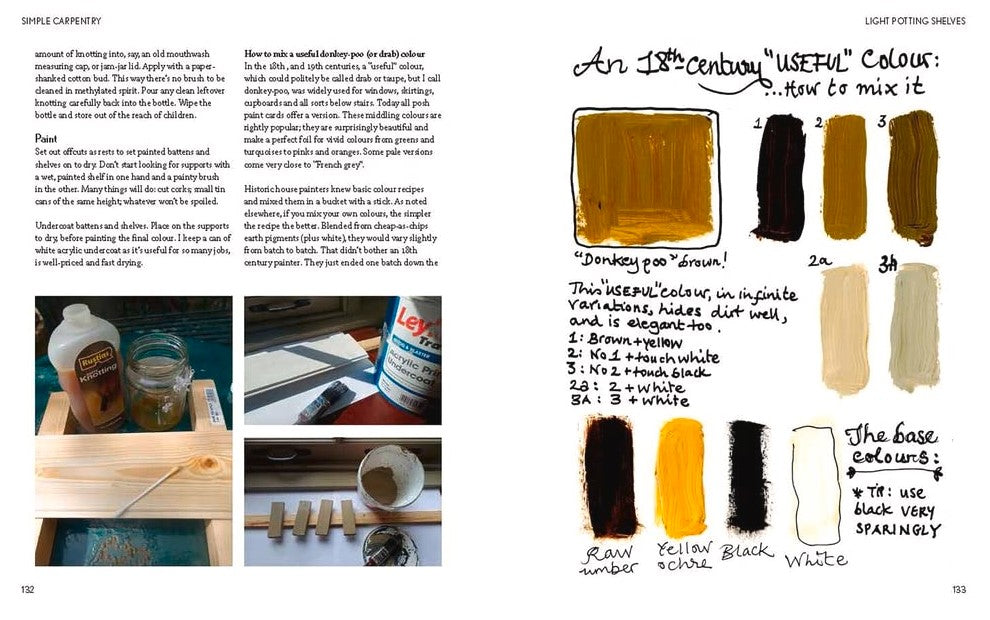 SIMPLE CARPENTRY
amount of knotting into, say, an old mouthwash
measuring cap, or jam-jar lid. Apply with a paper-
shanked cotton bud. This way there's no brush to be
cleaned in methylated spirit. Pour any clean leftover
knotting carefully back into the bottle. Wipe the
bottle and store out of the reach of children.
Paint
Set out offcuts as rests to set painted battens and
shelves on to dry. Don't start looking for supports with
a wet, painted shelf in one hand and a painty brush
in the other. Many things will do: cut corks; small tin
cans of the same height; whatever won't be spoiled.
Undercoat battens and shelves. Place on the supports
to dry, before painting the final colour. I keep a can of
white acrylic undercoat as it's useful for so many jobs,
is well-priced and fast drying.
How to mix a useful donkey-poo (or drab) colour
In the 18th, and 19th centuries, a "useful" colour,
which could politely be called drab or taupe, but I call
donkey-poo, was widely used for windows, skirtings,
cupboards and all sorts below stairs. Today all posh
paint cards offer a version. These middling colours are
rightly popular; they are surprisingly beautiful and
make a perfect foil for vivid colours from greens and
turquoises to pinks and oranges. Some pale versions
come very close to "French grey".
Historic house painters knew basic colour recipes
and mixed them in a bucket with a stick. As noted
elsewhere, if you mix your own colours, the simpler
the recipe the better. Blended from cheap-as-chips
earth pigments (plus white), they would vary slightly
from batch to batch. That didn't bother an 18th
century painter. They just ended one batch down the
Rustins
Knotting
Ley
Tra
Acrylic Pri
Undercoat
132
LIGHT POTTING SHELVES
An 18th century "USEFUL" Colour:
...How to mix it
1
2
3
"Donkey poo" brown!
2a
3A
This "USEFUL" colour, in infinite
variations, hides dirt well,
and is elegant too.
1: Brown + yellow
2: No 1 + touch white
3: No 2 + touch black
2a: 2 + white
3A: 3 + white
The base
colours:
* TIP: use
black VERY
SPARINGLY
Raw
umber
Yellow
ochre
Black
White
133